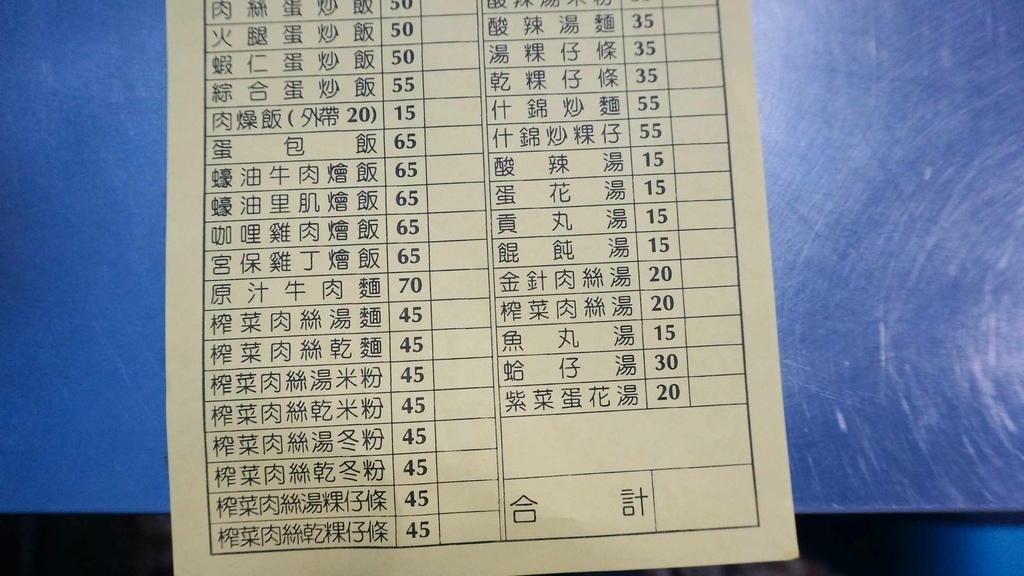 肉絲蛋炒飯 50
火腿蛋炒飯 50
蝦仁蛋炒飯 50
綜合蛋炒飯 55
肉燥飯(外帶20) 15
蛋包飯 65
蠔油牛肉燴飯 65
蠔油里肌燴飯 65
咖哩雞肉燴飯 65
宮保雞丁燴飯 65
原汁牛肉麵 70
榨菜肉絲湯麵 45
榨菜肉絲乾麵 45
榨菜肉絲湯米粉 45
榨菜肉絲乾米粉 45
榨菜肉絲湯冬粉 45
榨菜肉絲乾冬粉 45
榨菜肉絲湯粿仔條 45
榨菜肉絲乾粿仔條 45
酸辣湯米粉
酸辣湯麵 35
湯粿仔條 35
乾粿仔條 35
什錦炒麵 55
什錦炒粿仔 55
酸辣湯 15
蛋花湯 15
貢丸湯 15
餛飩湯 15
金針肉絲湯 20
榨菜肉絲湯 20
魚丸湯 15
蛤仔湯 30
紫菜蛋花湯 20
合計